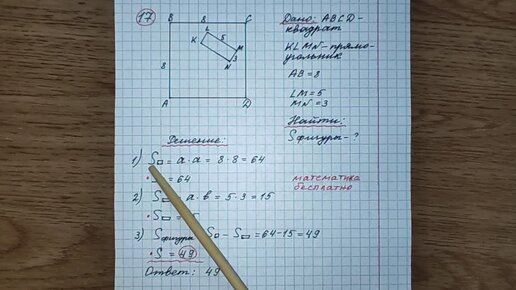 17
B 8 C
L
K 5 M
3
N
8
A D
Дано: ABCD-
квадрат
KLMN-прямо-
угольник
AB=8
LM=5
MN=3
Найти:
Sфигуры-?
Решение:
1) S□ = a·a = 8·8 = 64
• = 64
2) S▭ a·b = 5·3 = 15
• S▭ =
3) Sфигуры S□ - S▭ = 64-15 = 49
• S = 49
Ответ: 49
математика
бесплатно